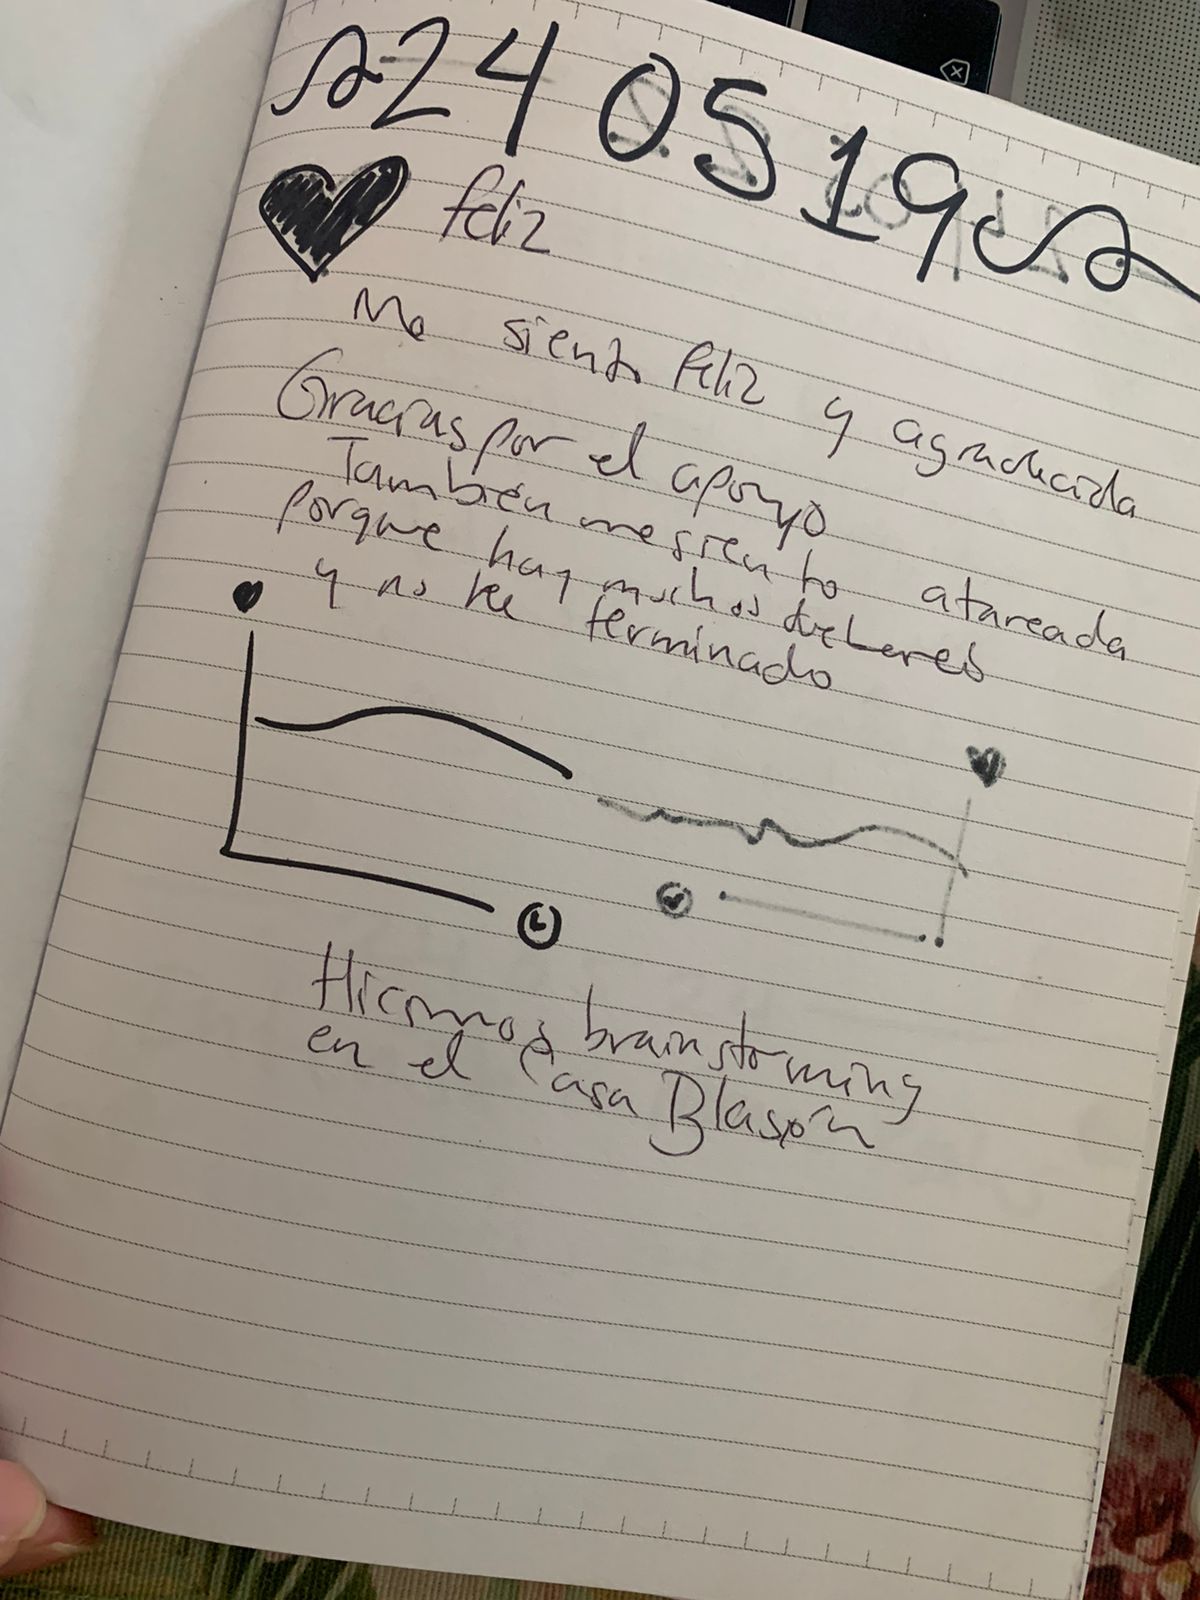 24 05 19
feliz
Me siento feliz y agradecida
Gracias por el apoyo
También me siento atareada
porque hay muchos deberes
y no he terminado
Hicimos brainstorming
en el Casa Blasón